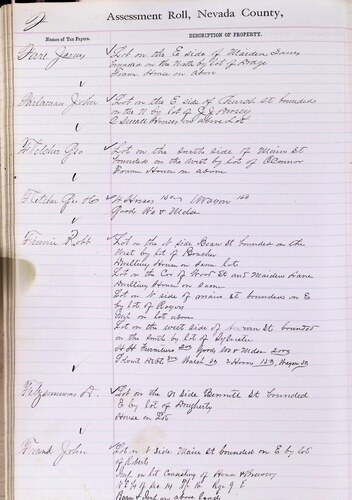 Assessment Roll, Nevada County,
Names of Tax Payers.
DESCRIPTION OF PROPERTY.
Fare James
Lot on the E side of Maiden Lane
bounded on the North by lot of Dodge
Frame House on above
John
Lot on the E side of Church St bounded
on the N by lot of J J Dorsey
2 Small Houses on above Lot
Fletcher Geo
Lot on the South side of Main St
bounded on the West by lot of OConnor
Frame House on above
Fletcher Geo &Co
Horses Wagon
Goods Wa & Mdse
Finnie Robt
Lot on the N side Bean St bounded on the
West by lot of
Dwelling House on same lots
Lot on the Cor of Wood St and Maiden Lane
Dwelling House on same
Lot N side of Main St bounded on E
by lot of Rogers
Imp on lot above
Lot on the west side of St bounded
on the South by lot of Sylvester
H H Furniture 200 Goods Wa & Mdse 2000
Watch 2 Horses 150 Wagon 50
Fitzsimmons D.
Lot on the N side Bennett St bounded
E by lot of Dougherty
House on Lot
Frank John
Lot N side Main St bounded on E by lot
of Roberts
Imp on lot Consisting of House & Brewery
Rge 9 E
Barn & Imp on above Lands